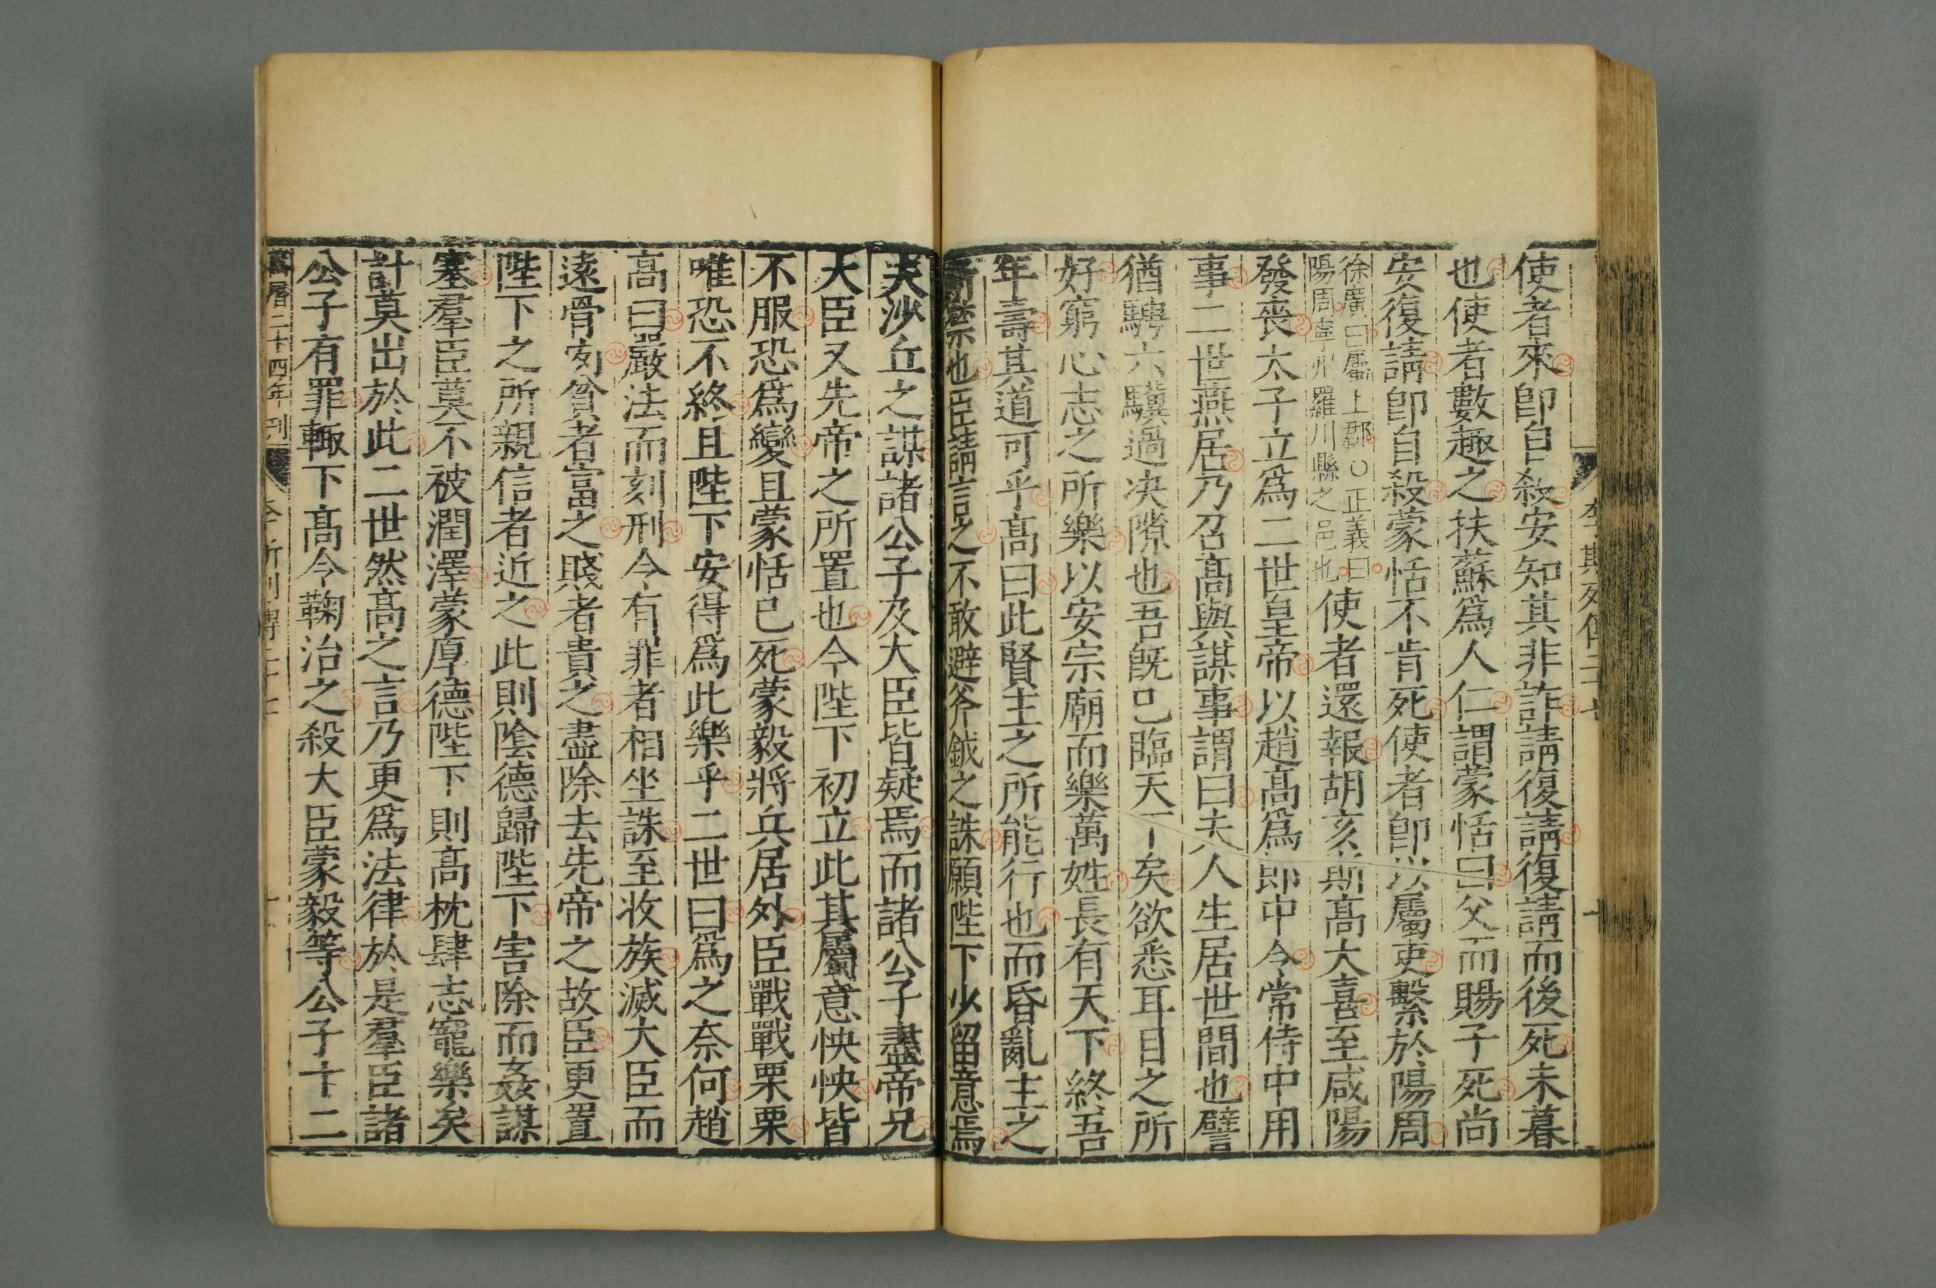 使者來即自殺安知其非詐請復請復請而後死未暮
也使者數趣之扶蘇爲人仁謂蒙恬曰父而賜子死尚
安復請即自殺蒙恬不肯死使者即以屬吏繫於陽周
徐廣曰屬上郡○正義曰
陽周寧州羅川縣之邑也
使者還報胡亥斯高大喜至咸陽
發喪太子立爲二世皇帝以趙高爲郎中令常侍中用
事二世燕居乃召高與謀事謂曰夫人生居世間也譬
猶騁六驥過决隙也吾既已臨天下矣欲悉耳目之所
好窮心志之所樂以安宗廟而樂萬姓長有天下終吾
年壽其道可乎高曰此賢主之所能行也而昏亂主之
所禁也臣請言之不敢避斧鉞之誅願陛下少留意焉
夫沙丘之謀諸公子及大臣皆疑焉而諸公子盡帝兄
大臣又先帝之所置也今陛下初立此其屬意怏怏皆
不服恐爲變且蒙恬已死蒙毅將兵居外臣戰戰栗栗
唯恐不終且陛下安得爲此樂乎二世曰爲之奈何趙
高曰嚴法而刻刑令有罪者相坐誅至收族滅大臣而
遠骨肉貧者富之賤者貴之盡除去先帝之故臣更置
陛下之所親信者近之此則陰德歸陛下害除而姦謀
塞羣臣莫不被潤澤蒙厚德陛下則高枕肆志寵樂矣
計莫出於此二世然高之言乃更爲法律於是羣臣諸
公子有罪輒下高令鞠治之殺大臣蒙毅等公子十二
萬曆二十四年刊